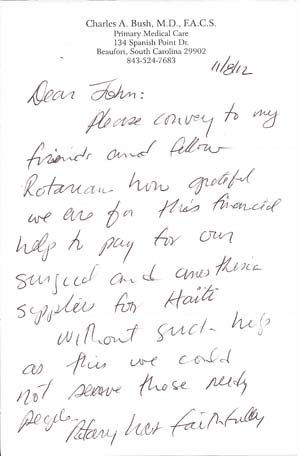 Charles A. Bush, M.D., F.A.C.S.
Primary Medical Care
134 Spanish Point Dr.
Beaufort, South Carolina 29902
843-524-7683
11/8/12
Dear John:
Please convey to my
friends and fellow
Rotarians how grateful
we are for this financial
help to pay for our
surgical and anesthesia
supplies for Haiti
Without such help
as this we could
not serve those needy
people.
Rotary has faithfully